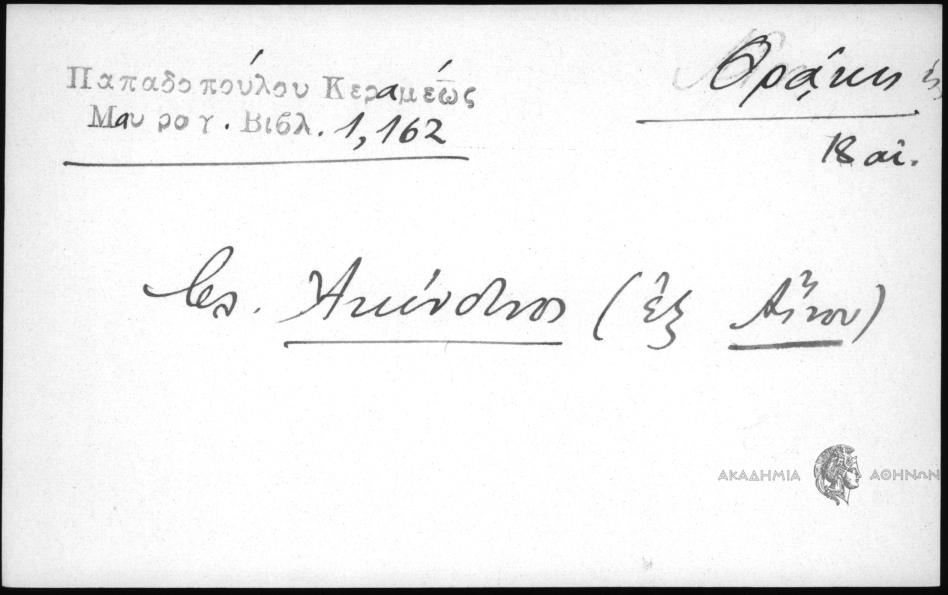 Παπαδοπούλου Κεραμέως
Μαυρογ. Βιβλ. 1, 162
Θράκης
18 αἰ.
Ἀκίνδυνος (ἐξ Αἴνου)
ΑΚΑΔΗΜΙΑ ΑΘΗΝΩΝ